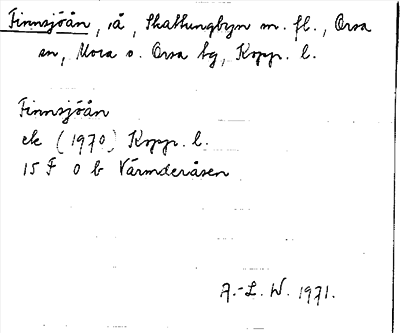 Finnsjöån, å, Skattungbyn m. fl., Orsa
sn, Mora o. Orsa tg, Kopp. l.
Finnsjöån
ek (1970) Kopp. l.
15 F 0 b Värmderåsen
A.-L. W. 1971.